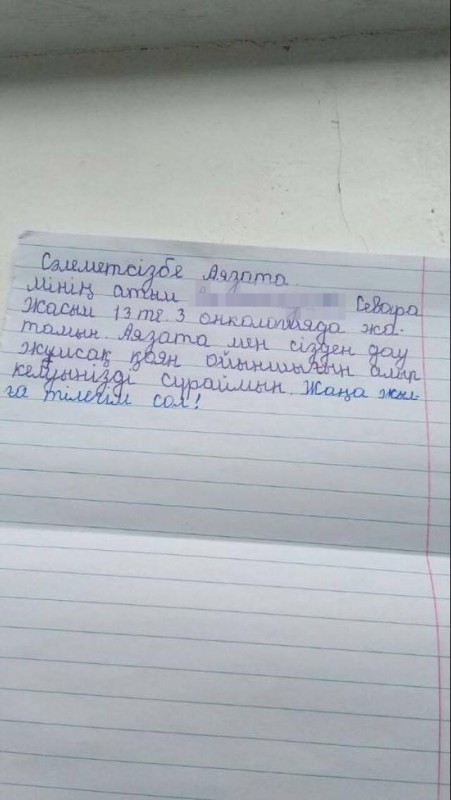 Сәлеметсізбе Аязата.
Мінің атым Севара
Жасым 13 те. 3 онкологияда жа-
тамын. Аязата мен сізден дәу
жұмсақ қоян ойыншығын алып
келуынізді сұраймын. Жаңа жыл-
ға тілегім сол!